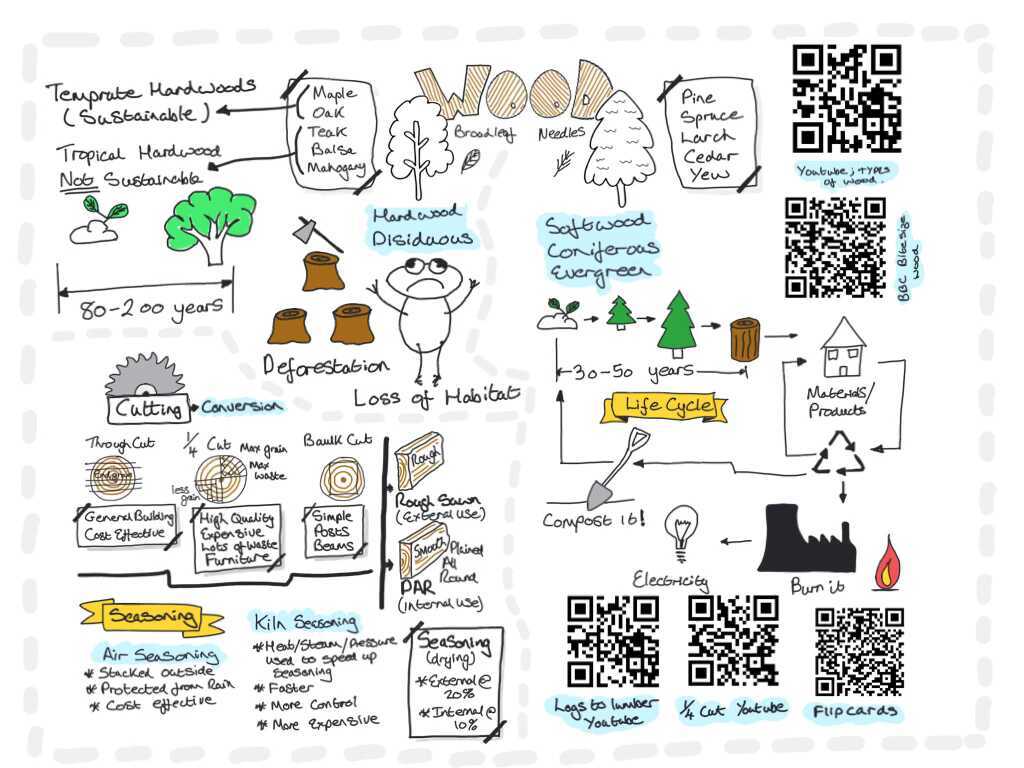 WOOD
Temprate Hardwoods
(Sustainable)
Tropical Hardwood
Not Sustainable
Maple
Oak
Teak
Balsa
Mahogany
Broadleaf
Needles
Pine
Spruce
Larch
Cedar
Yew
Youtube; types
of wood.
BBC Bitesize
wood
Hardwood
Disiduous
Softwood
Coniferous
Evergreen
80-200 years
Deforestation
Loss of Habitat
30-50 years
Life Cycle
Materials/
Products
Compost it!
Electricity
Burn it
Cutting
Conversion
Through Cut
General Building
Cost Effective
1/4 Cut
Max grain
Max
waste
less
grain
High Quality
Expensive
Lots of Waste
Furniture
Baulk Cut
Simple
Posts
Beams
Rough
Rough Sawn
(External use)
Smooth
Plained
All
Round
PAR
(Internal Use)
Seasoning
Air Seasoning
* Stacked outside
* Protected from Rain
* Cost effective
Kiln Seasoning
* Heat/Steam/Pressure
used to speed up
Seasoning
* Faster
* More Control
* More Expensive
Seasoning
(drying)
* External @
20%
* Internal @
10%
Logs to lumber
Youtube
1/4 Cut Youtube
Flipcards